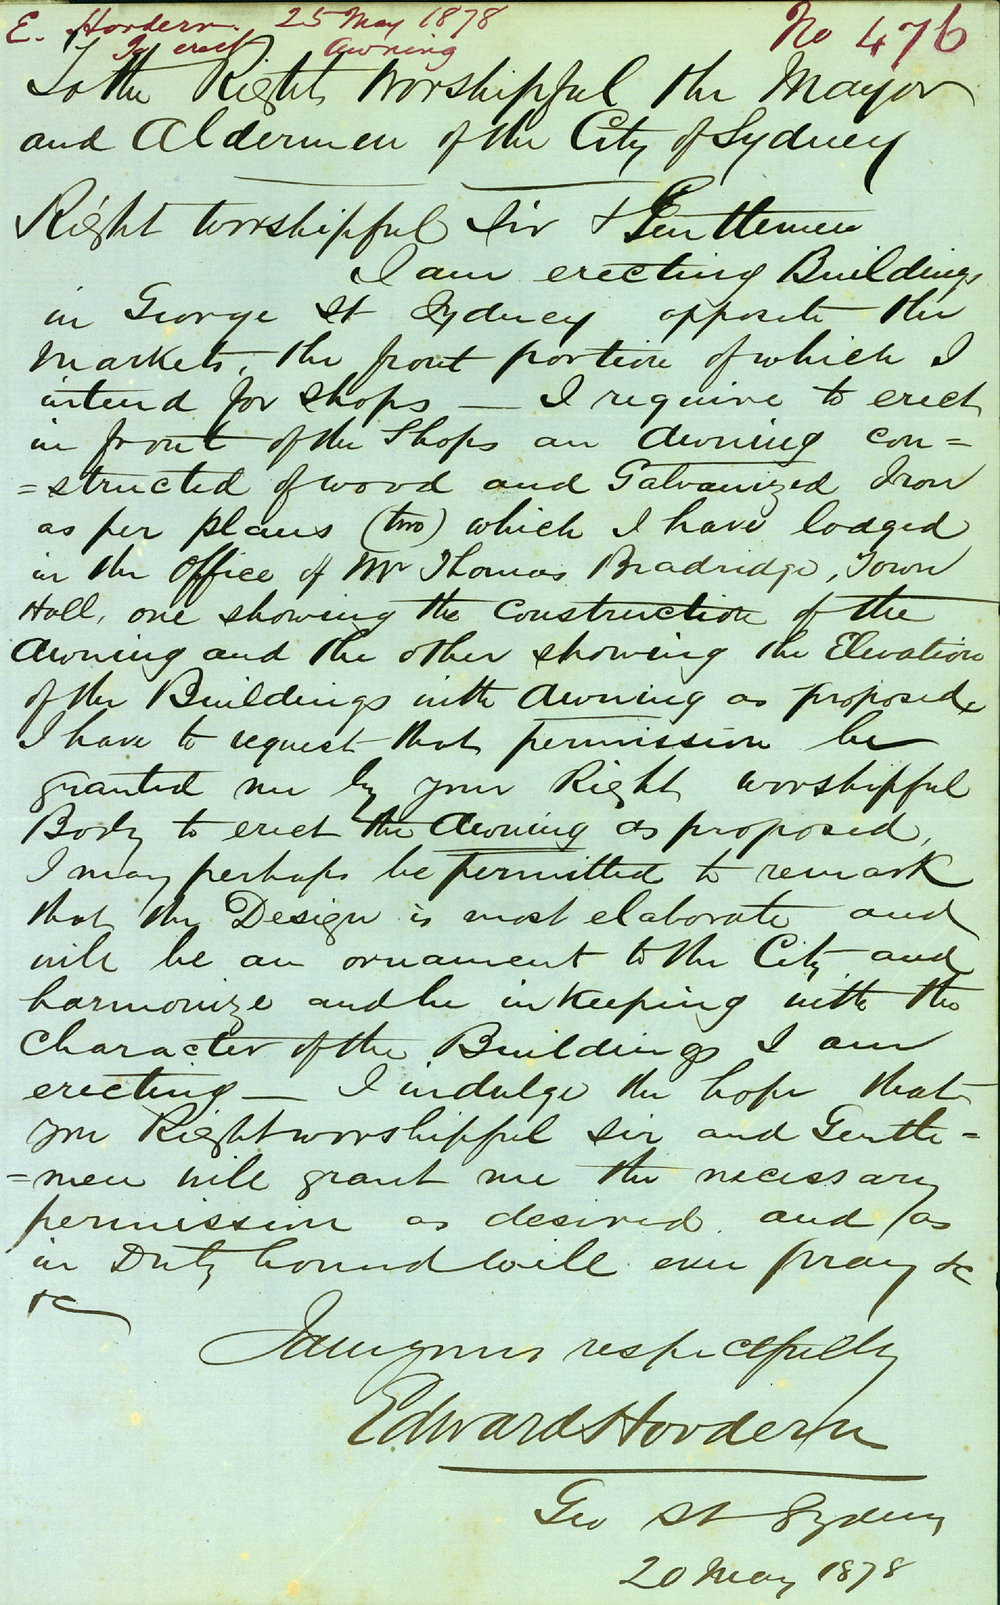 E. Hordern. 25 May 1878
To erect Awning
No 476
To the Right Worshipful the Mayor
and Aldermen of the City of Sydney
Right Worshipful Sir & Gentlemen
I am erecting Buildings
in George St Sydney opposite the
Markets, the front portion of which I
intend for Shops — I require to erect
in front of the Shops an Awning con=
=structed of wood and Galvanized Iron
as per plans (two) which I have lodged
in the Office of Mr Thomas Bradridge, Town
Hall, one showing the Construction of the
Awning and the other showing the Elevation
of the Buildings with Awning as proposed,
I have to request that permission be
granted me by your Right Worshipful
Body to erect the Awning as proposed,
I may perhaps be permitted to remark
that the Design is most elaborate and
will be an ornament to the City and
harmonize and be in keeping with the
Character of the Buildings I am
erecting — I indulge the hope that
you Right worshipful Sir and Gentle=
=men will grant me the necessary
permission as desired and as
in Duty bound will ever pray &c
&c
I am yours respectfully
Edward Hordern
Geo St Sydney
20 May 1878